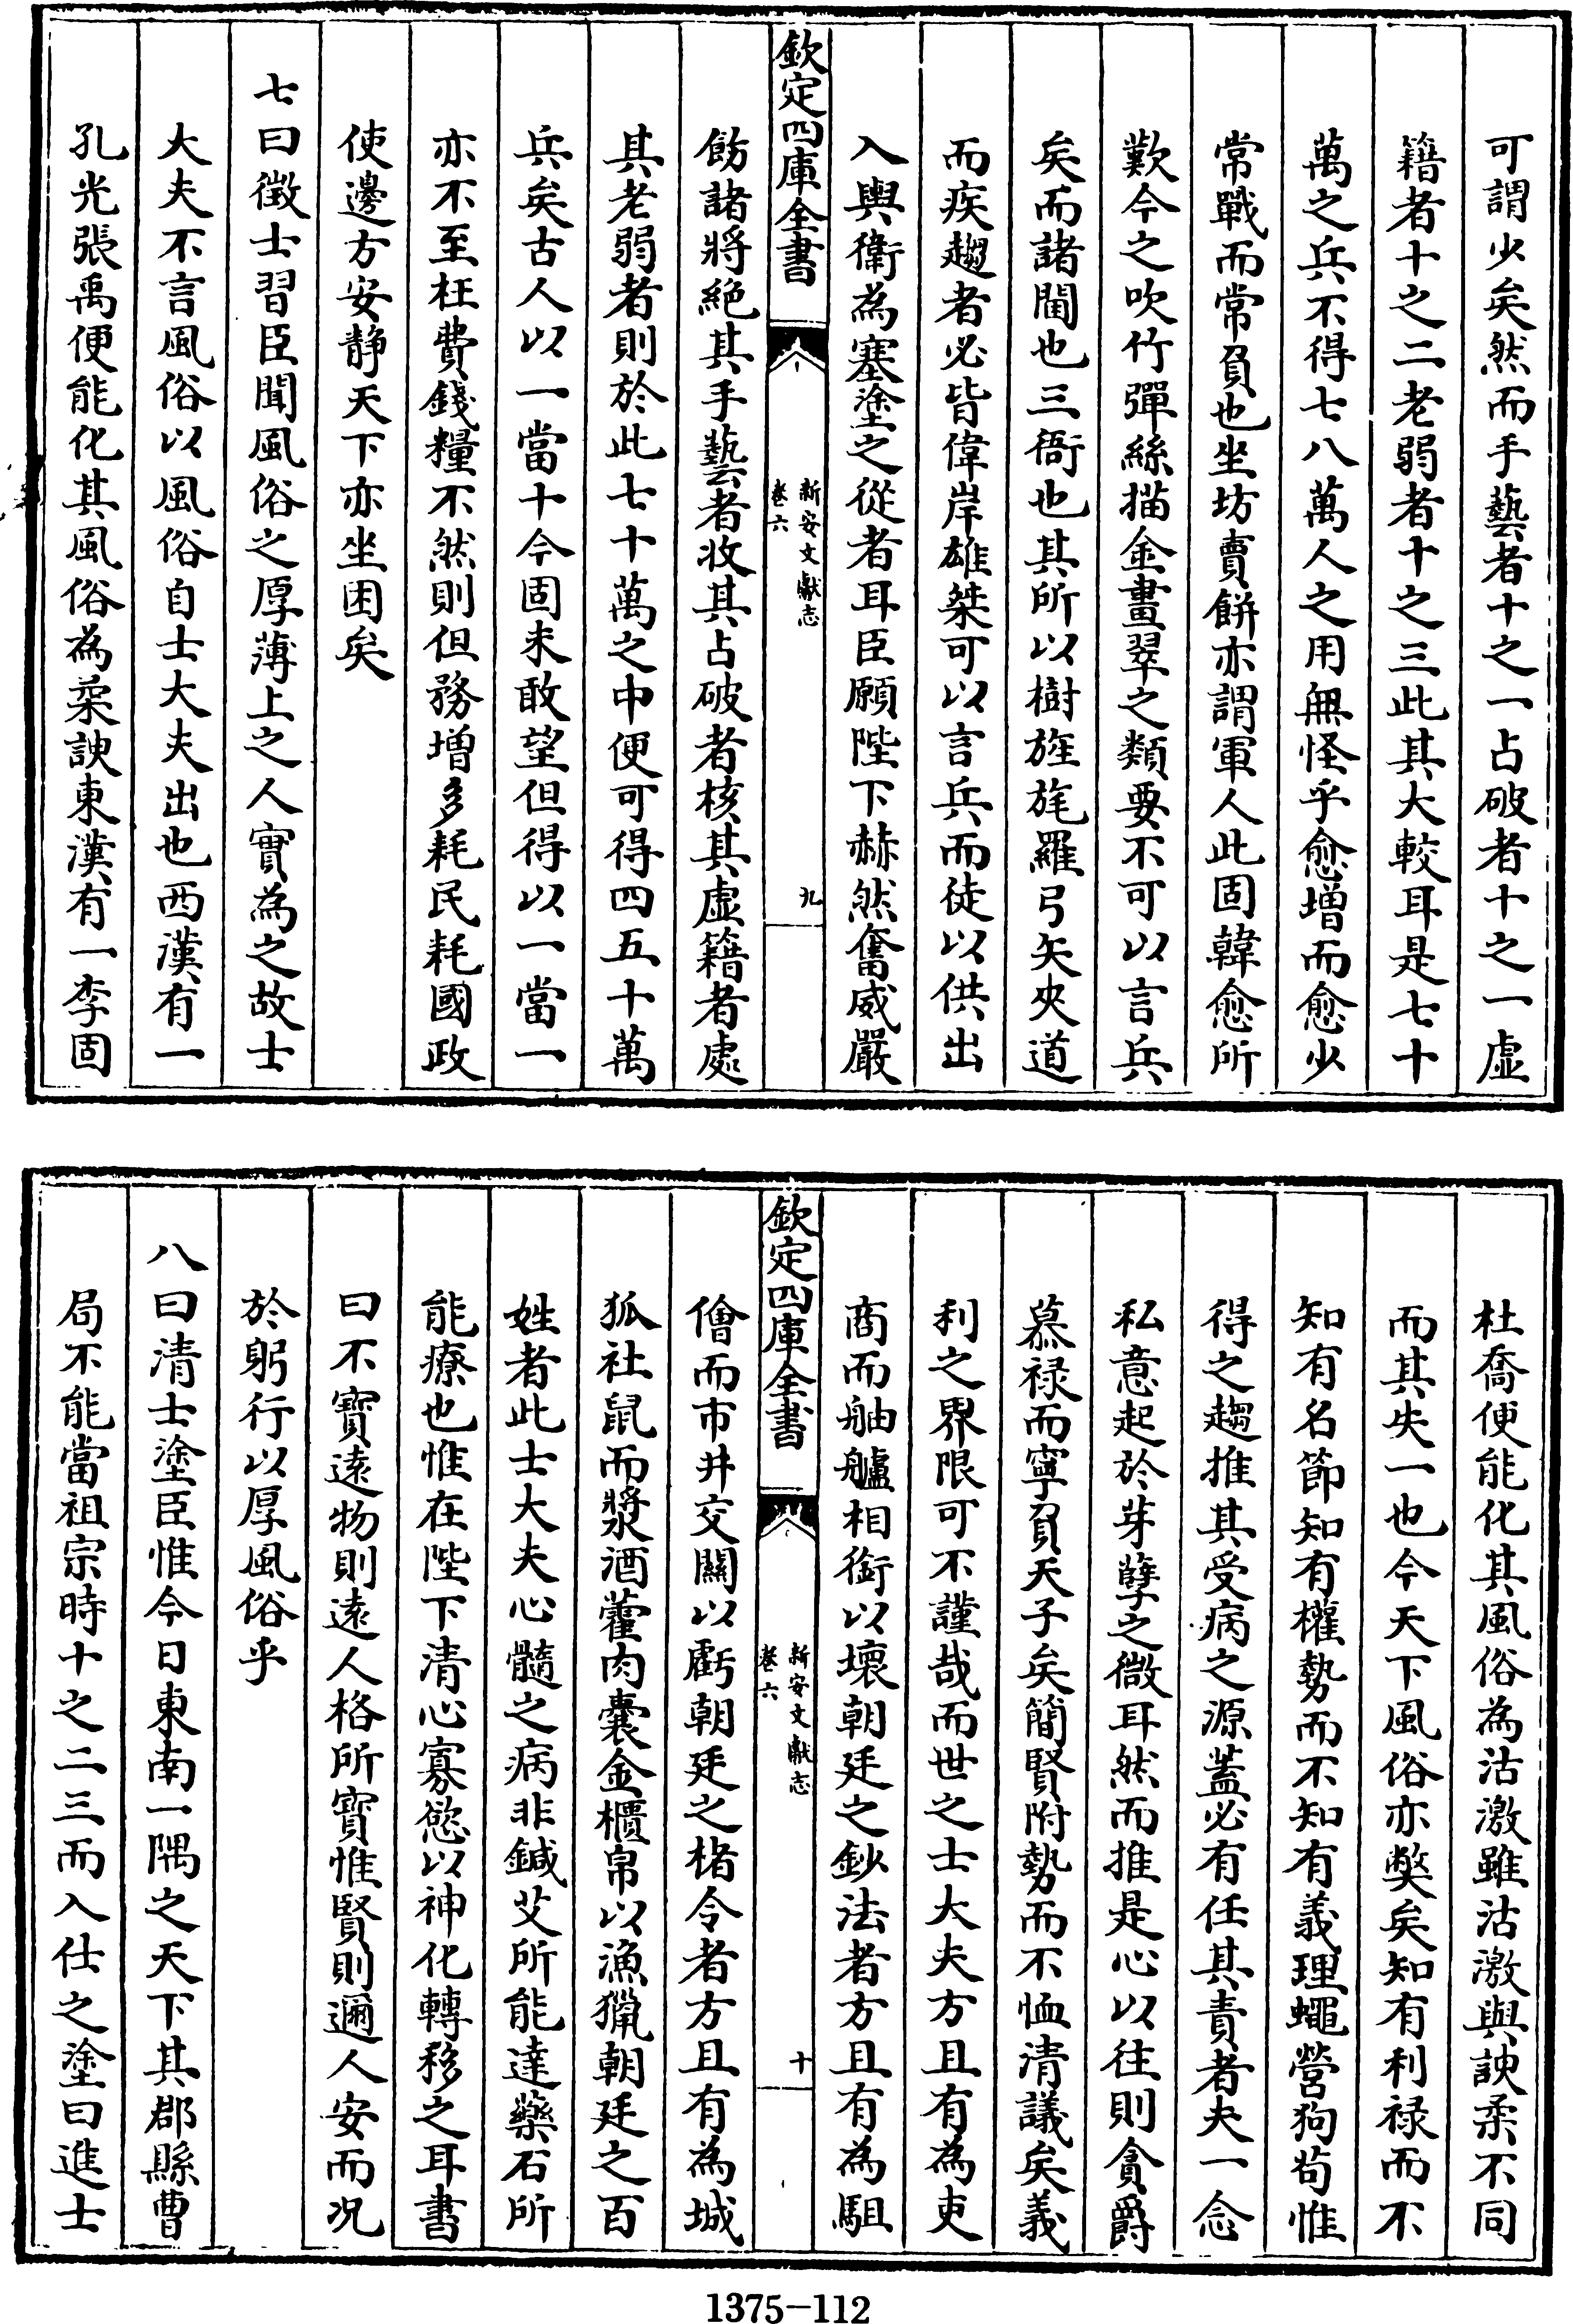 可謂少矣然而手藝者十之一占破者十之一虛
籍者十之二老弱者十之三此其大較耳是七十
萬之兵不得七八萬人之用無怪乎愈增而愈少
常戰而常負也坐坊賣餅亦謂軍人此固韓愈所
歎今之吹竹彈絲描金畫翠之類要不可以言兵
矣而諸閫也三衙也其所以樹旌旄羅弓矢夾道
而疾趨者必皆偉岸雄桀可以言兵而徒以供出
入輿衛為塞塗之從者耳臣願陛下赫然奮威嚴
欽定四庫全書
新安文獻志
卷六
九
飭諸將絕其手藝者收其占破者核其虛籍者處
其老弱者則於此七十萬之中便可得四五十萬
兵矣古人以一當十今固未敢望但得以一當一
亦不至枉費錢糧不然則但務增多耗民耗國政
使邊方安靜天下亦坐困矣
七曰徵士習臣聞風俗之厚薄上之人實為之故士
大夫不言風俗以風俗自士大夫出也西漢有一
孔光張禹便能化其風俗為柔諛東漢有一李固
杜喬便能化其風俗為沽激雖沽激與諛柔不同
而其失一也今天下風俗亦獘矣知有利祿而不
知有名節知有權勢而不知有義理蠅營狗茍惟
得之趨推其受病之源蓋必有任其責者夫一念
私意起於芽孽之微耳然而推是心以往則貪爵
慕祿而寧負天子矣簡賢附勢而不恤清議矣義
利之界限可不謹哉而世之士大夫方且有為吏
商而舳艫相銜以壞朝廷之鈔法者方且有為駔
欽定四庫全書
新安文獻志
卷六
十
儈而市井交關以虧朝廷之楮令者方且有為城
狐社鼠而漿酒藿肉囊金櫃帛以漁獵朝廷之百
姓者此士大夫心髓之病非鍼艾所能達藥石所
能療也惟在陛下清心寡慾以神化轉移之耳書
曰不寶遠物則遠人格所寶惟賢則邇人安而况
於躬行以厚風俗乎
八曰清士塗臣惟今日東南一隅之天下其郡縣曹
局不能當祖宗時十之二三而入仕之塗曰進士
1375-112